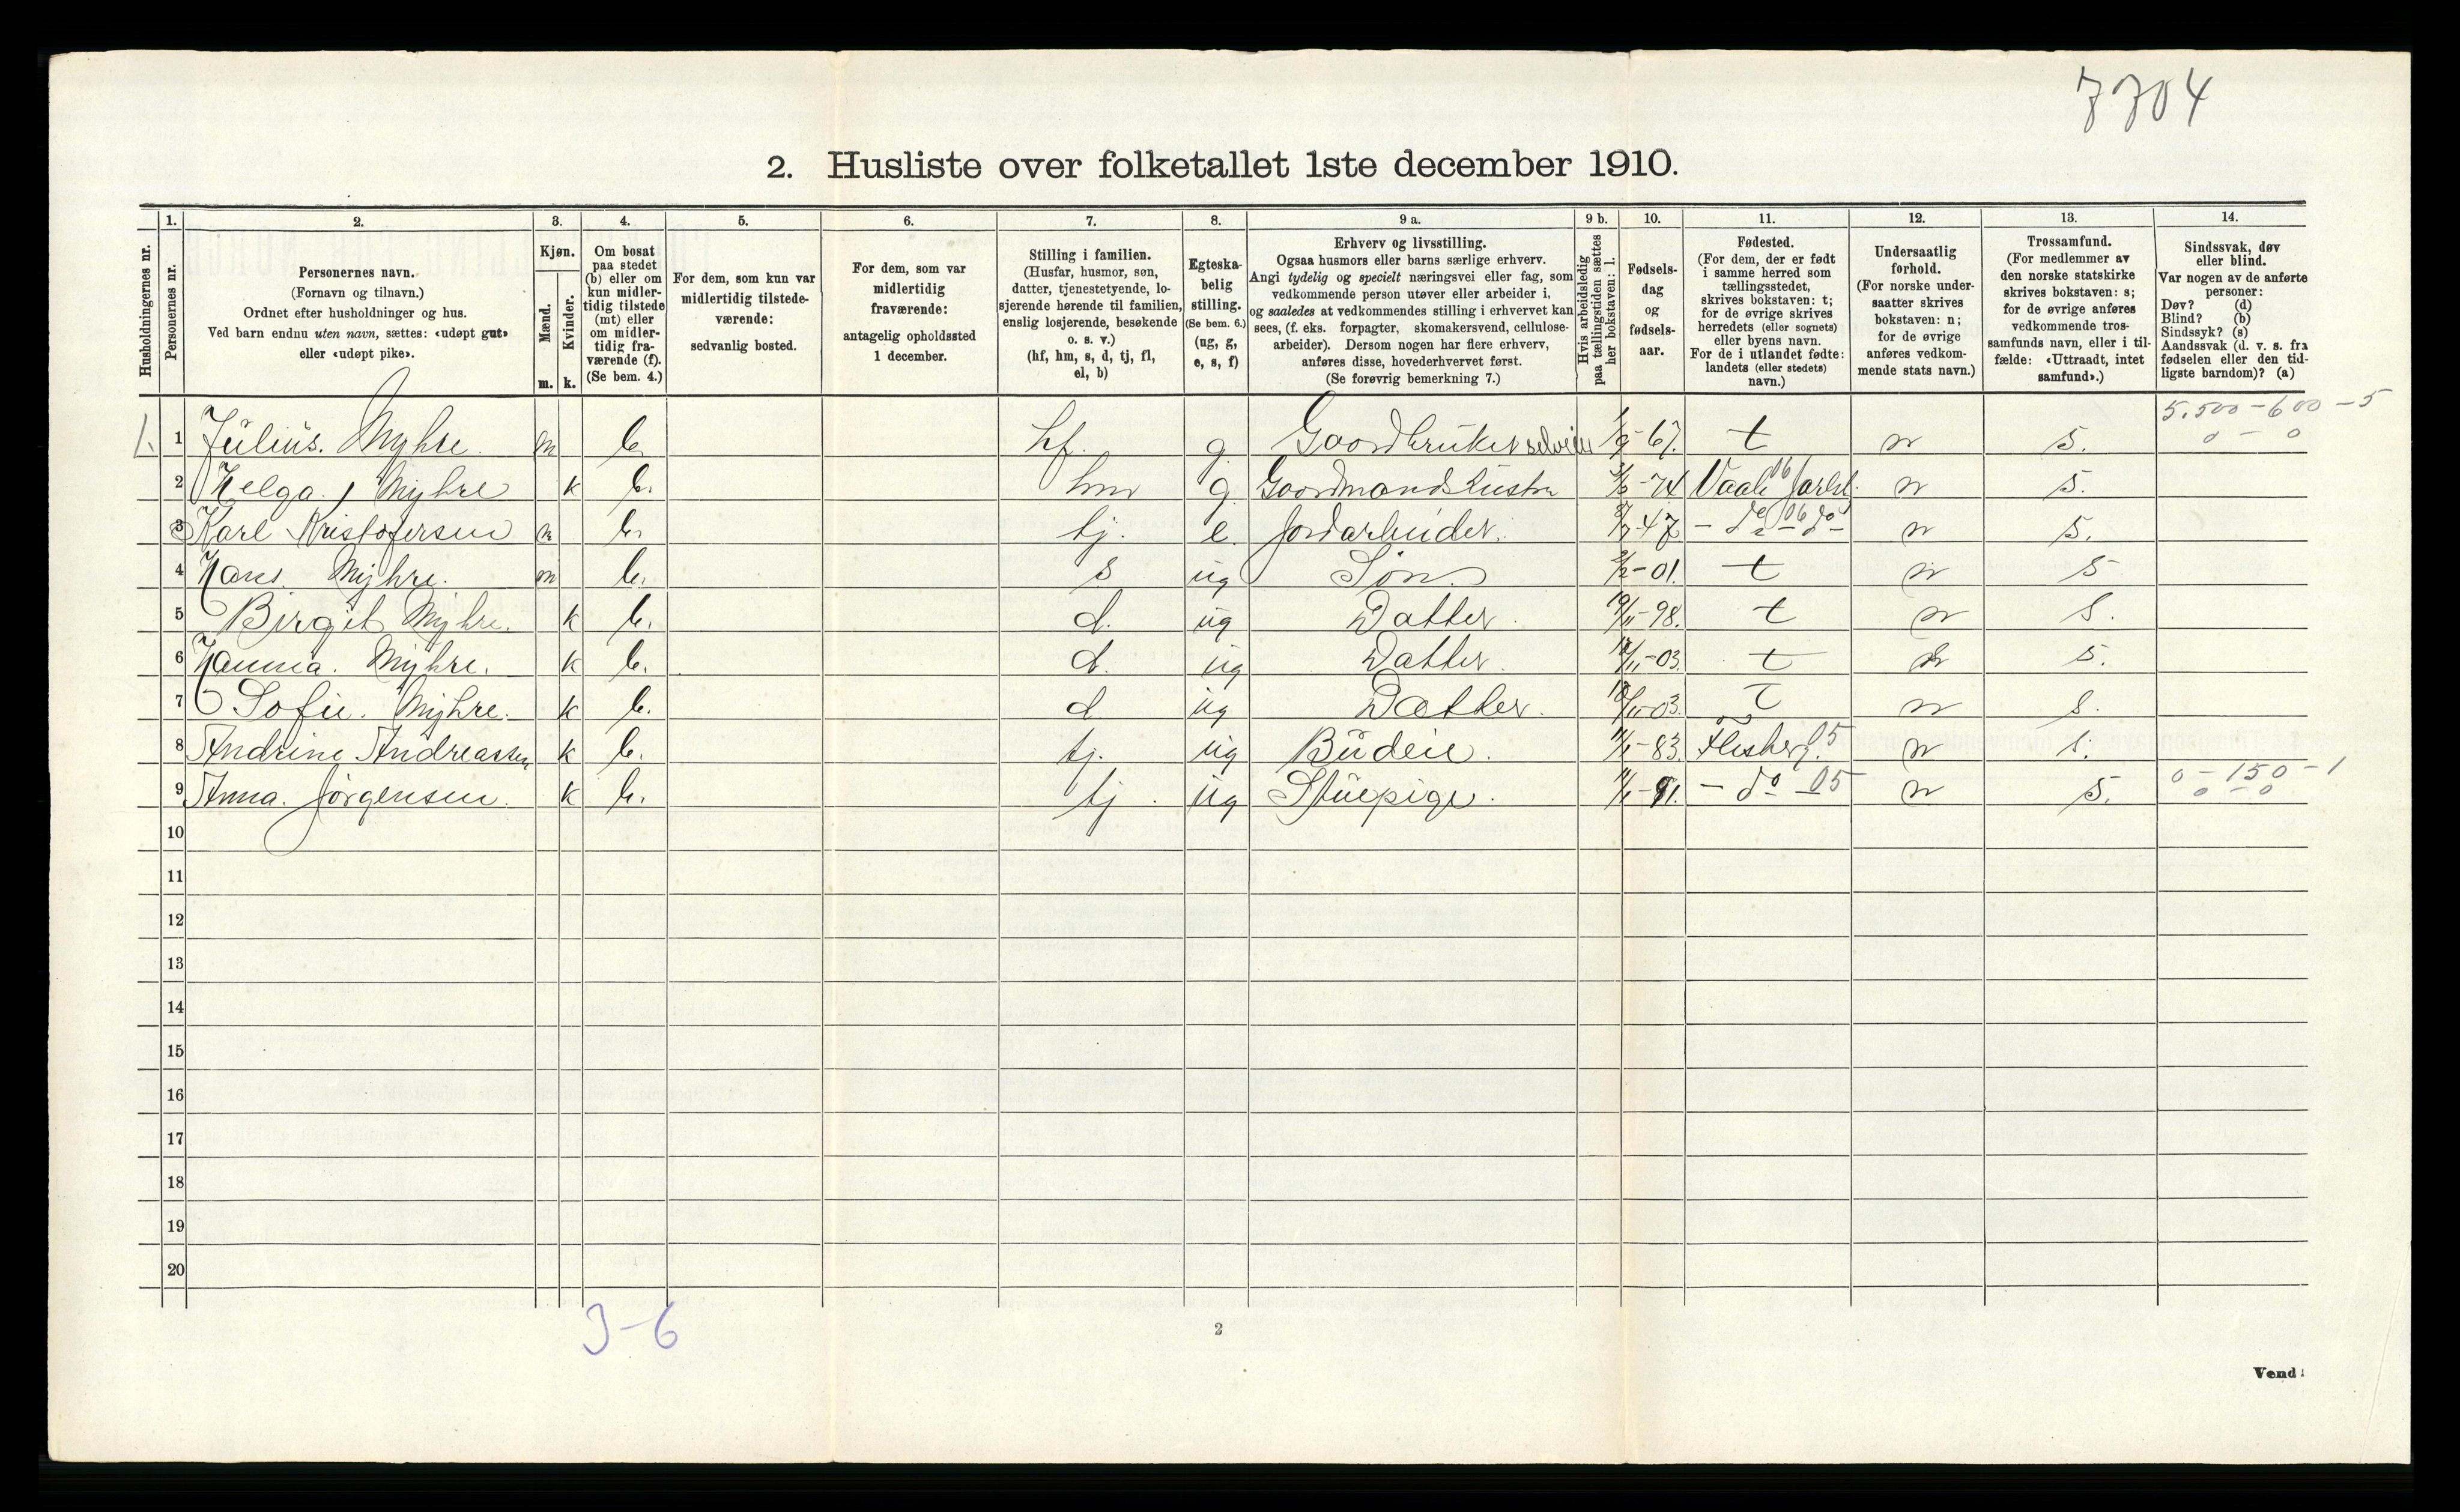 7704
2. Husliste over folketallet 1ste december 1910.
Husholdningernes nr.
1. Personernes nr.
2. Personernes navn.
(Fornavn og tilnavn.)
Ordnet efter husholdninger og hus.
Ved barn endnu uten navn, sættes: «udøpt gut»
eller «udøpt pike».
3. Kjøn.
Mænd. m.
Kvinder. k.
4. Om bosat
paa stedet
(b) eller om
kun midler-
tidig tilstede
(mt) eller
om midler-
tidig fra-
værende (f).
(Se bem. 4.)
5. For dem, som kun var
midlertidig tilstede-
værende:
sedvanlig bosted.
6. For dem, som var
midlertidig
fraværende:
antagelig opholdssted
1 december.
7. Stilling i familien.
(Husfar, husmor, søn,
datter, tjenestetyende, lo-
sjerende hørende til familien,
enslig losjerende, besøkende
o. s. v.)
(hf, hm, s, d, tj, fl,
el, b)
8. Egteska-
belig
stilling.
(Se bem. 6.)
(ug, g,
e, s, f)
9 a. Erhverv og livsstilling.
Ogsaa husmors eller barns særlige erhverv.
Angi tydelig og specielt næringsvei eller fag, som
vedkommende person utøver eller arbeider i,
og saaledes at vedkommendes stilling i erhvervet kan
sees, (f. eks. forpagter, skomakersvend, cellulose-
arbeider). Dersom nogen har flere erhverv,
anføres disse, hovederhvervet først.
(Se forøvrig bemerkning 7.)
9 b. Hvis arbeidsledig
paa tællingstiden sættes
her bokstaven: l.
10. Fødsels-
dag
og
fødsels-
aar.
11. Fødested.
(For dem, der er født
i samme herred som
tællingsstedet,
skrives bokstaven: t;
for de øvrige skrives
herredets (eller sognets)
eller byens navn.
For de i utlandet fødte:
landets (eller stedets)
navn.)
12. Undersaatlig
forhold.
(For norske under-
saatter skrives
bokstaven: n;
for de øvrige
anføres vedkom-
mende stats navn.)
13. Trossamfund.
(For medlemmer av
den norske statskirke
skrives bokstaven: s;
for de øvrige anføres
vedkommende tros-
samfunds navn, eller i til-
fælde: «Uttraadt, intet
samfund».)
14. Sindssvak, døv
eller blind.
Var nogen av de anførte
personer:
Døv? (d)
Blind? (b)
Sindssyk? (s)
Aandssvak (d. v. s. fra
fødselen eller den tid-
ligste barndom)? (a)
5.500 - 600 - 5
1. 1 Julius. Myhre m b. hf. g. Gaardbruker selveier 1/9-67. t n s. 0 - 0
2 Helga. Myhre k b. hm g -74 Vaale 06 Jarlsb. n s.
3 Karl Kristofersen m b. tj. e. Jordarbeider. -47 - do 06 do - n s.
4 Hans. Myhre. m b. s ug Søn. 2/2-01. t n s
5 Birgit Myhre. k b. d. ug Datter. 19/11-98. t n s.
6 Hanna. Myhre. k b. d. ug Datter. /11-03. t n s.
7 Sofie. Myhre. k b. d ug Datter. /11-03. t n s.
8 Andrine Andreassen k b. tj. ug Budeie. -83. Flesberg. 05 n s.
0 - 150 - 1
9 Anna. Jörgensen. k b. tj. ug Stuepige. -91. - do 05 n s. 0 - 0
10
11
12
13
14
15
16
17
18
19
20
3-6
2
Vend!